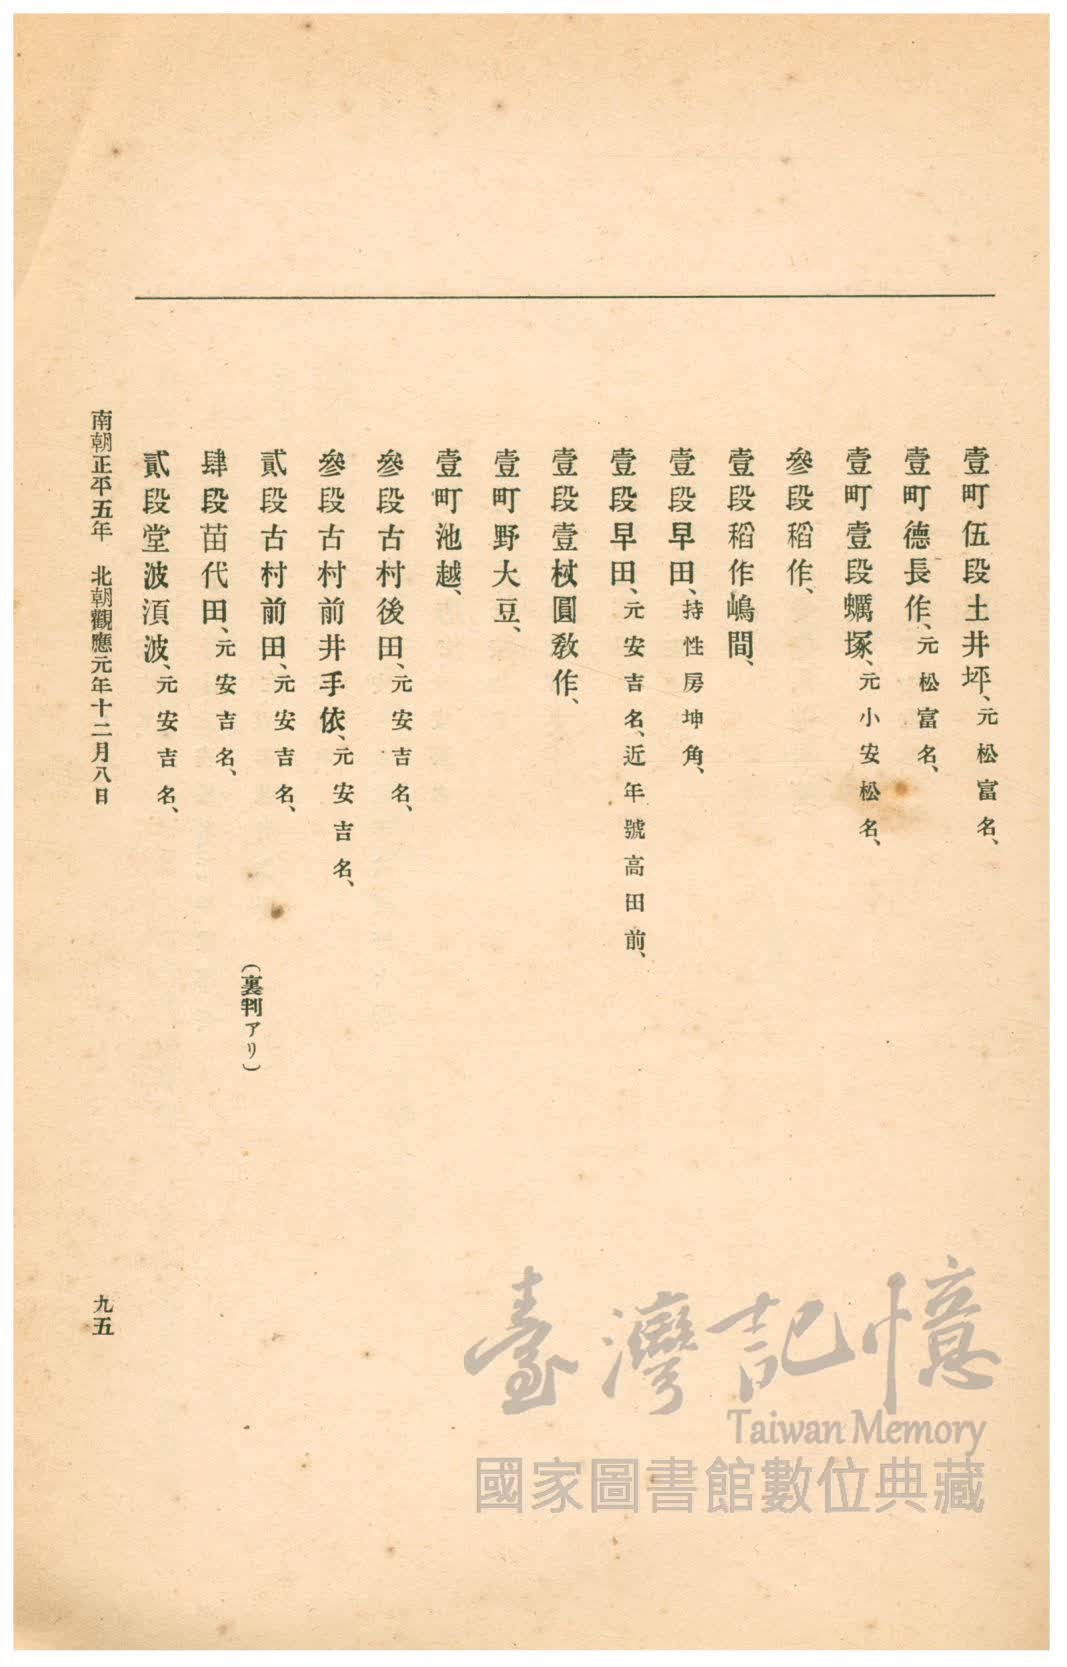 壹町伍段土井坪、元松富名、
壹町德長作、元松富名、
壹町壹段蠣塚、元小安松名、
參段稻作、
壹段稻作嶋間、
壹段早田、持性房坤角、
壹段早田、元安吉名、近年號高田前、
壹段壹杖圓敎作、
壹町野大豆、
壹町池越、
參段古村後田、元安吉名、
參段古村前井手依、元安吉名、
貳段古村前田、元安吉名、
(裏判アリ)
肆段苗代田、元安吉名、
貳段堂波須波、元安吉名、
南朝正平五年 北朝觀應元年十二月八日
九五
臺灣記憶
Taiwan Memory
國家圖書館數位典藏